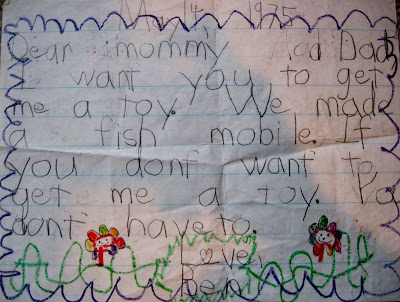 May 14 1975
Dear mommy and Dad
I want you to get
me a toy. We made
a fish mobile. If
you dont want to
get me a toy. Yo
dont have to.
Love,
Ben